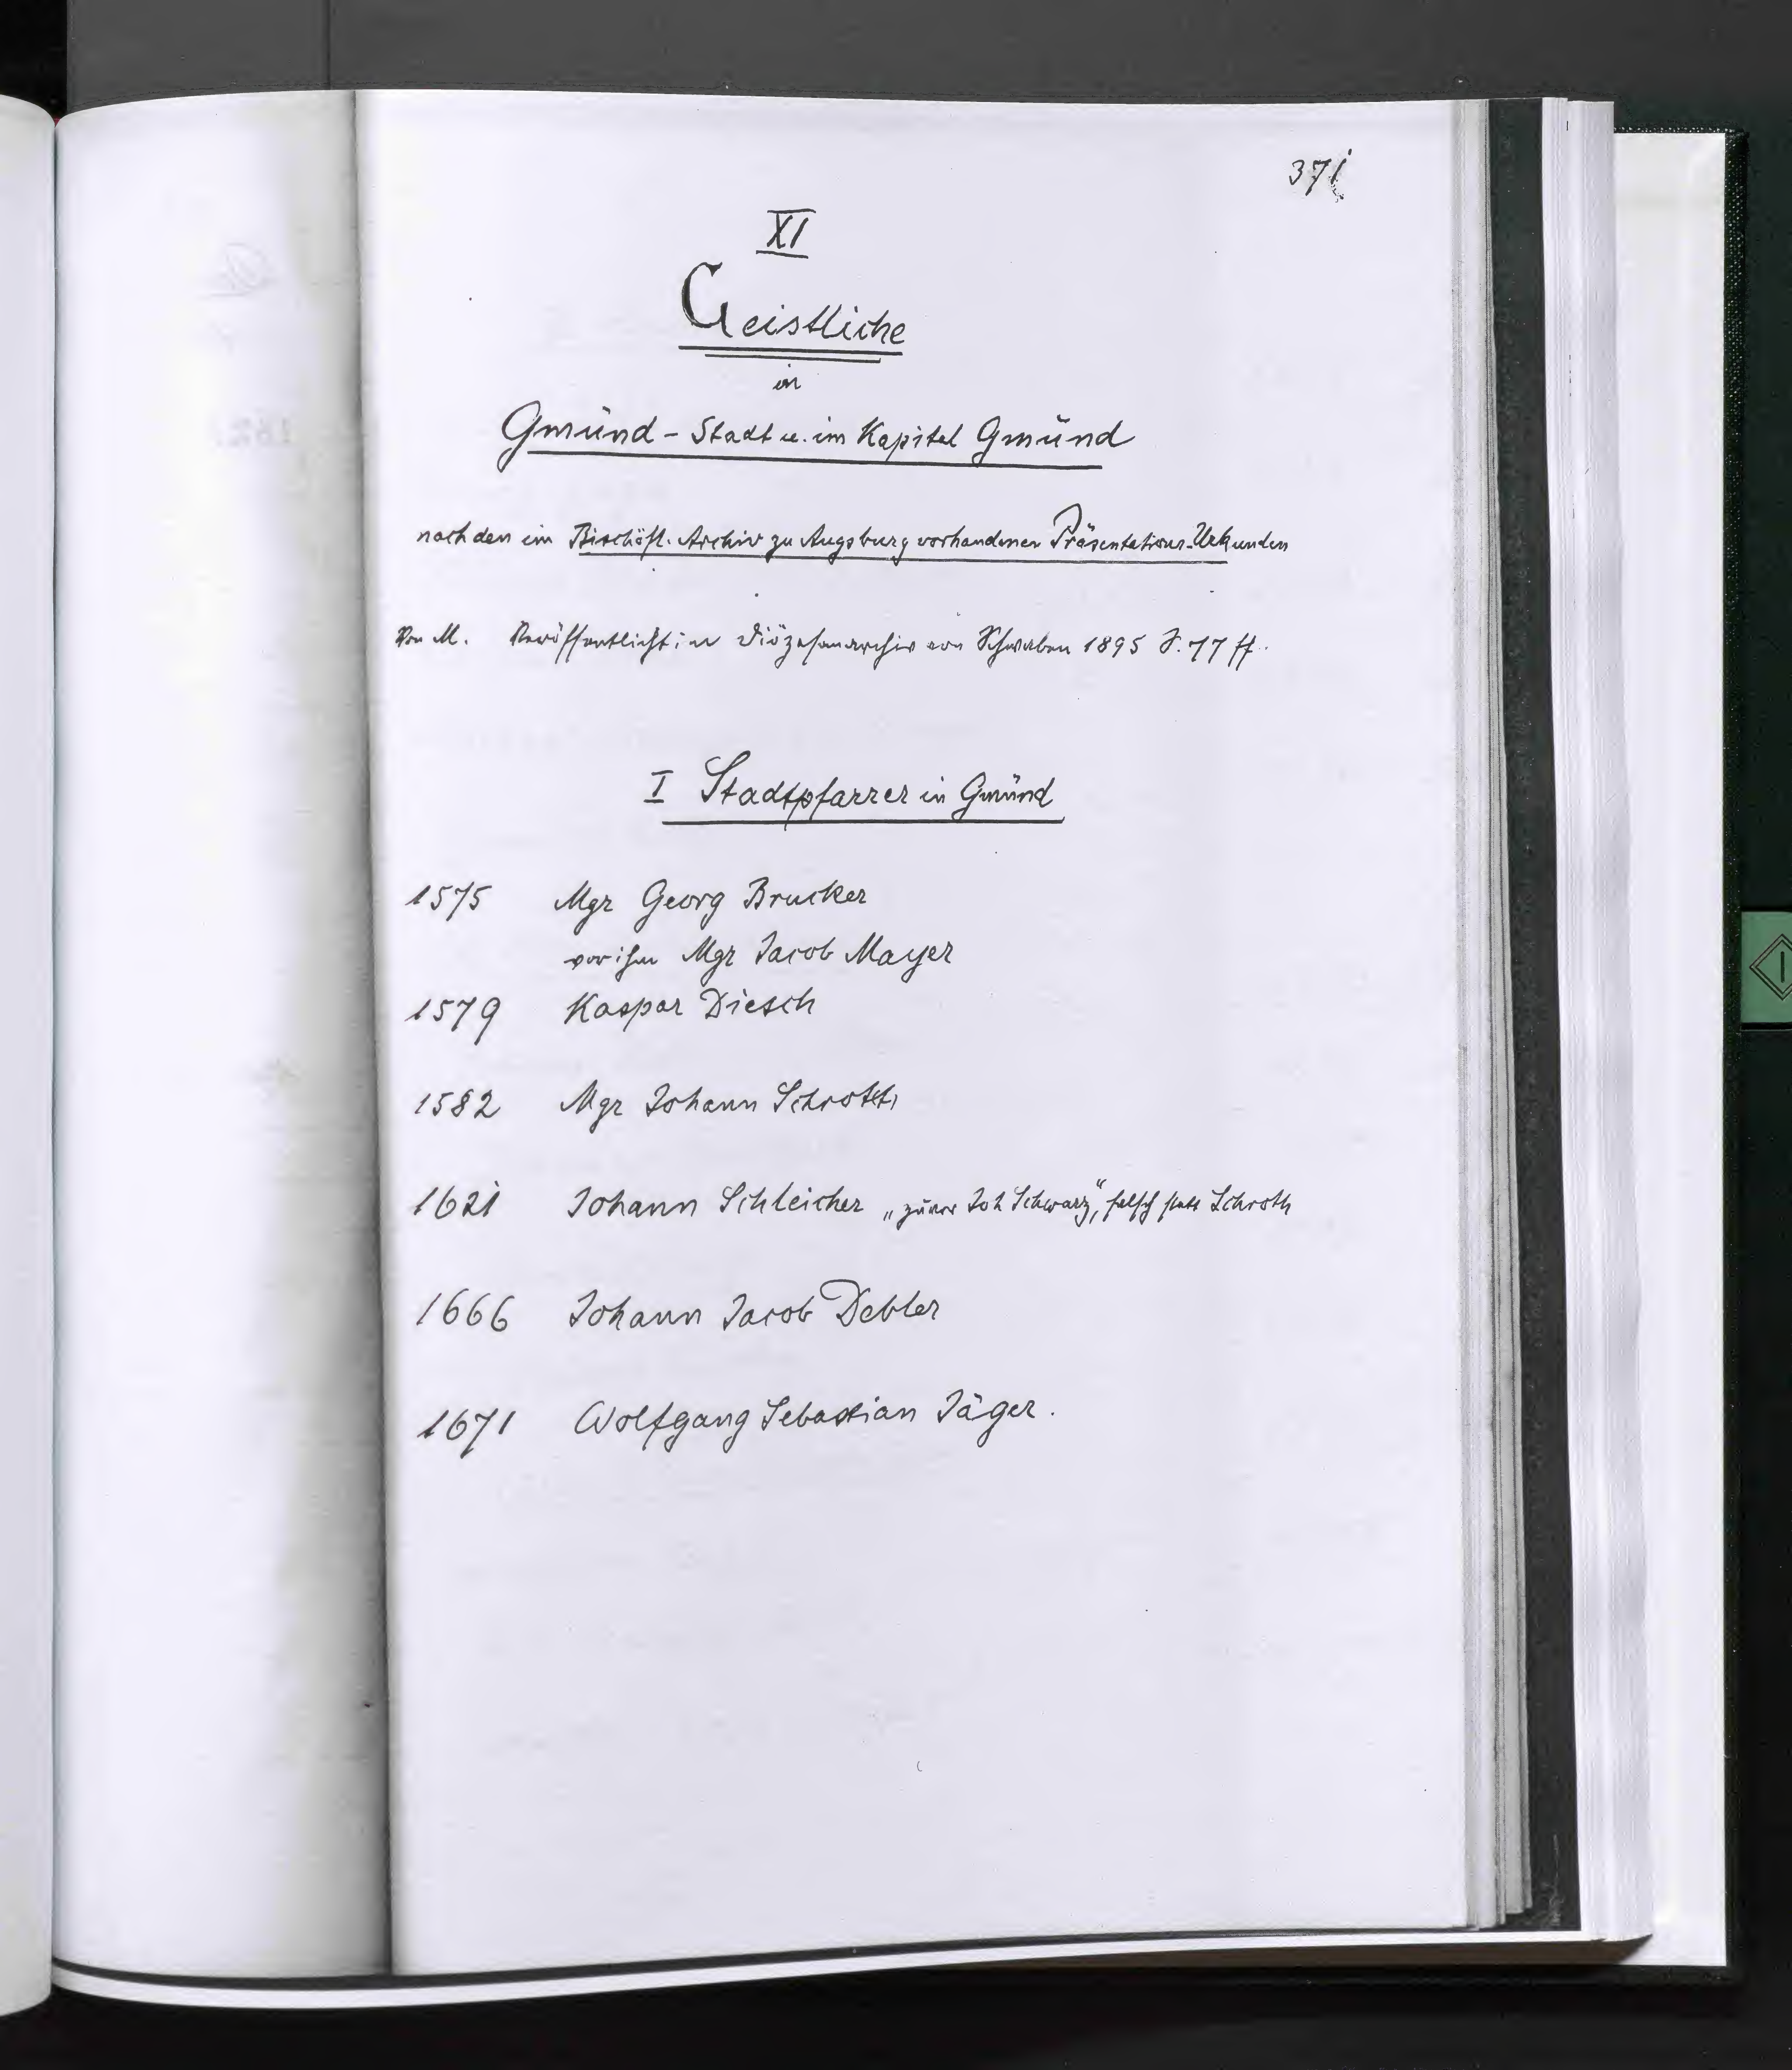 371
XI
Geistliche
in
Gmünd - Stadt u. im Kapitel Gmünd
nach den im Bischöfl. Archiv zu Augsburg vorhandenen Präsentations-Urkunden
Von M. Veröffentlicht in Diözesanarchiv von Schwaben 1895 S. 77 ff.
I Stadtpfarrer in Gmünd
1575 Mgr Georg Brucker
vor ihm Mgr Jacob Mayer
1579 Kaspar Diesch
1582 Mgr Johann Schroth
1621 Johann Schleicher „zuvor Joh Schwarz“, falsch statt Schroth
1666 Johann Jacob Debler
1671 Wolfgang Sebastian Jäger.